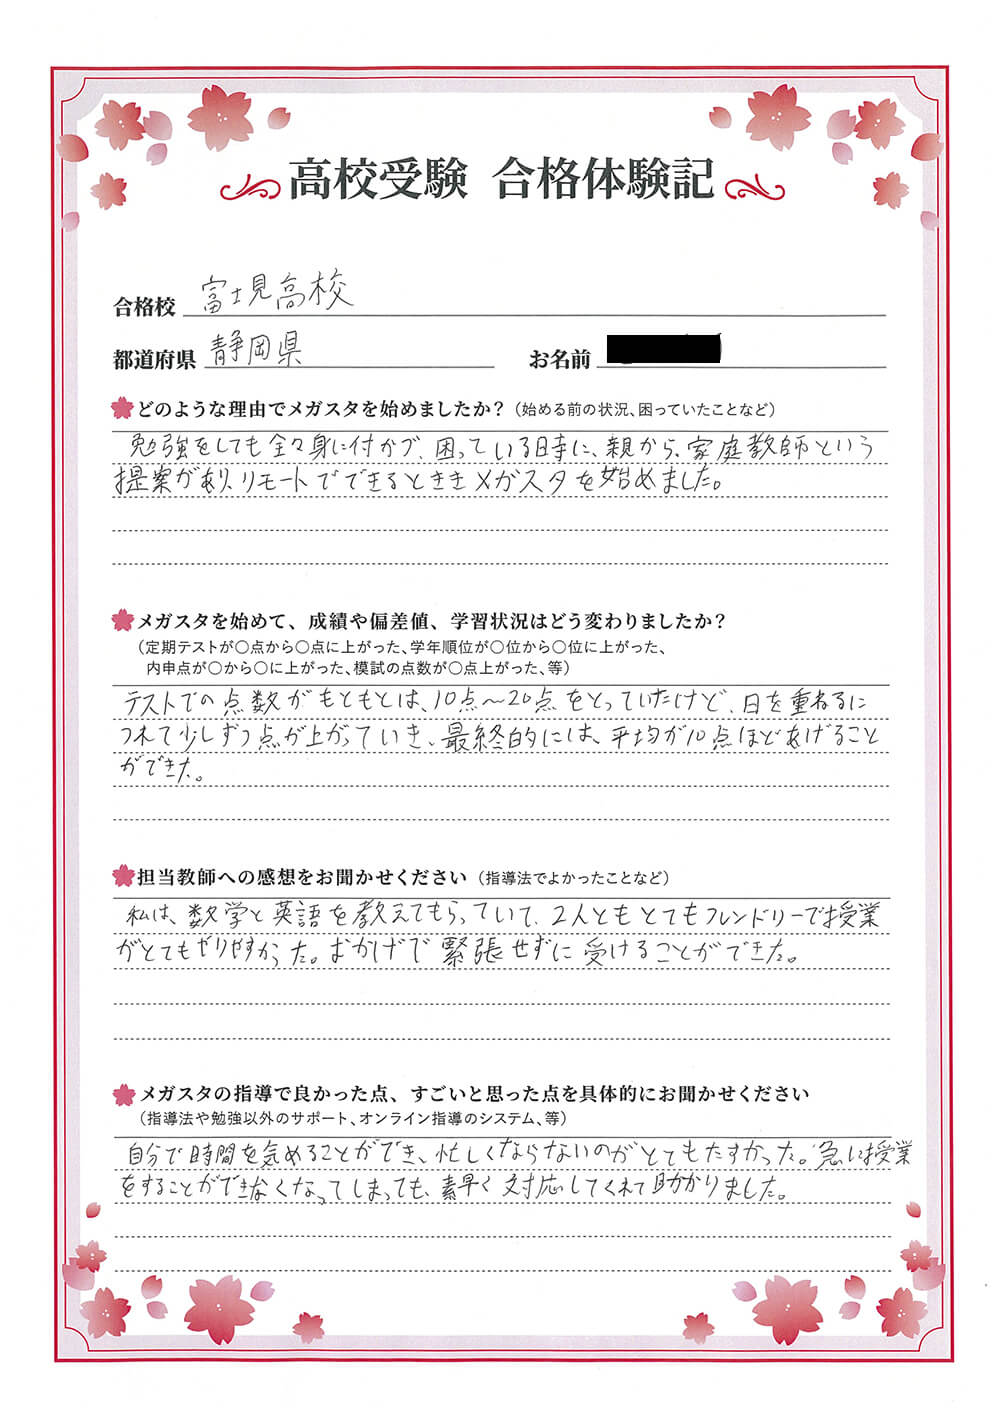 高校受験 合格体験記
合格校 富士見高校
都道府県 静岡県 お名前
どのような理由でメガスタを始めましたか？（始める前の状況、困っていたことなど）
勉強をしても全々身に付かず、困っている時に、親から、家庭教師という
提案があり、リモートでできるとききメガスタを始めました。
メガスタを始めて、成績や偏差値、学習状況はどう変わりましたか？
（定期テストが〇点から〇点に上がった、学年順位が〇位から〇位に上がった、
内申点が〇から〇に上がった、模試の点数が〇点上がった、等）
テストでの点数がもともとは、10点〜20点をとっていたけど、日を重ねるに
つれて少しずつ点が上がっていき、最終的には、平均が10点ほどあげること
ができた。
担当教師への感想をお聞かせください（指導法でよかったことなど）
私は、数学と英語を教えてもらっていて、2人ともとてもフレンドリーで授業
がとてもやりやすかった。おかげで緊張せずに受けることができた。
メガスタの指導で良かった点、すごいと思った点を具体的にお聞かせください
（指導法や勉強以外のサポート、オンライン指導のシステム、等）
自分で時間を気めることができ、忙しくならないのがとてもたすかった。急に授業
をすることができなくなってしまっても、素早く対応してくれて助かりました。